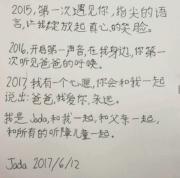 2015,第一次遇见你,指尖的语
言,让我绽放起真心的笑脸。
2016,开启第一声音,在我身边,你第一
次听见爸爸的呼唤。
2017,我有一个心愿,你会和我一起
说出:爸爸,我爱你,永远。
我是Jada,和我一起,和父辈一起,
和所有的听障儿童一起。
Jada 2017/6/12